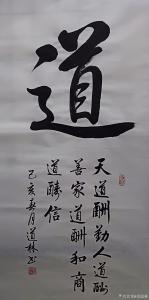 道
天道酬勤人道酬
善家道酬和商
道酬信
己亥春月道林书